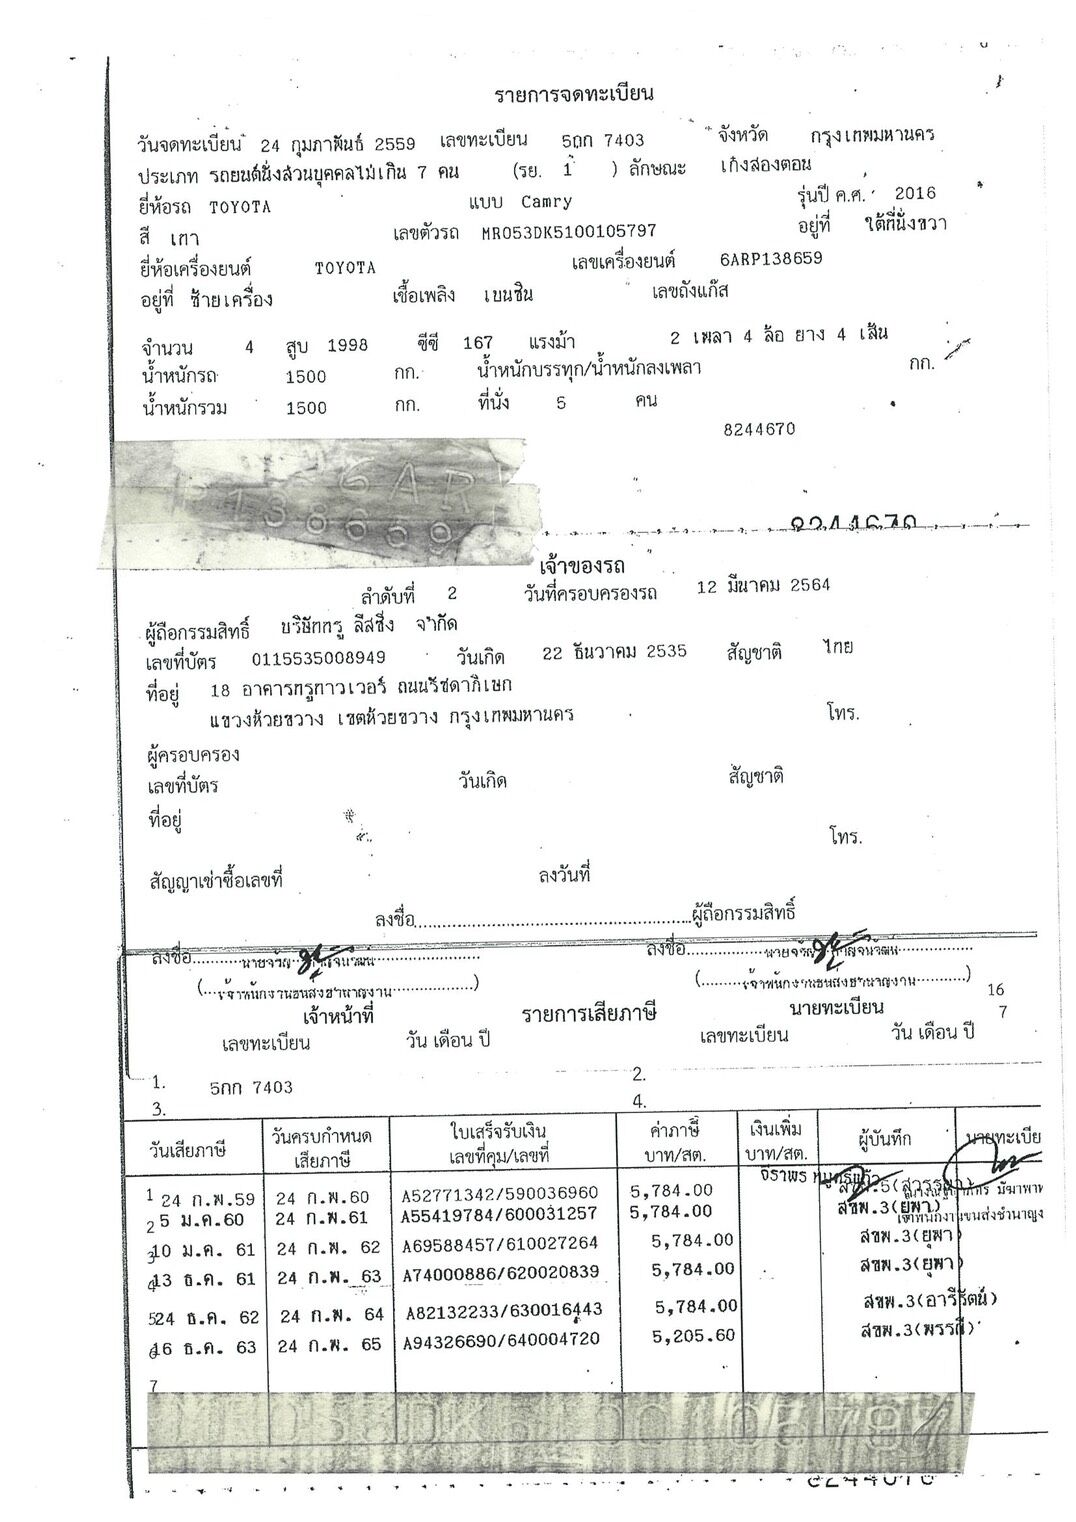 รายการจดทะเบียน
วันจดทะเบียน 24 กุมภาพันธ์ 2559 เลขทะเบียน 5กก 7403 จังหวัด กรุงเทพมหานคร
ประเภท รถยนต์นั่งส่วนบุคคลไม่เกิน 7 คน (รย. 1 ) ลักษณะ เก๋งสองตอน
ยี่ห้อรถ TOYOTA แบบ Camry รุ่นปี ค.ศ. 2016
สี เทา เลขตัวรถ MR053DK5100105797 อยู่ที่ ใต้ที่นั่งขวา
ยี่ห้อเครื่องยนต์ TOYOTA เลขเครื่องยนต์ 6ARP138659
อยู่ที่ ซ้ายเครื่อง เชื้อเพลิง เบนซิน เลขถังแก๊ส
จำนวน 4 สูบ 1998 ซีซี 167 แรงม้า 2 เพลา 4 ล้อ ยาง 4 เส้น
น้ำหนักรถ 1500 กก. น้ำหนักบรรทุก/น้ำหนักลงเพลา กก.
น้ำหนักรวม 1500 กก. ที่นั่ง 5 คน
8244670
6AR
P138659
8244670
เจ้าของรถ
ลำดับที่ 2 วันที่ครอบครองรถ 12 มีนาคม 2564
ผู้ถือกรรมสิทธิ์ บริษัททรู ลีสซิ่ง จำกัด
เลขที่บัตร 0115535008949 วันเกิด 22 ธันวาคม 2535 สัญชาติ ไทย
ที่อยู่ 18 อาคารทรูทาวเวอร์ ถนนรัชดาภิเษก
แขวงห้วยขวาง เขตห้วยขวาง กรุงเทพมหานคร โทร.
ผู้ครอบครอง
เลขที่บัตร วันเกิด สัญชาติ
ที่อยู่
โทร.
สัญญาเช่าซื้อเลขที่ ลงวันที่
ลงชื่อ ผู้ถือกรรมสิทธิ์
ลงชื่อ นายจรัญ ลงชื่อ นายจรัญ
(เจ้าพนักงานขนส่งชำนาญงาน) (เจ้าพนักงานขนส่งชำนาญงาน) 16
เจ้าหน้าที่ รายการเสียภาษี นายทะเบียน 7
เลขทะเบียน วัน เดือน ปี เลขทะเบียน วัน เดือน ปี
1. 5กก 7403 2.
3. 4.
วันเสียภาษี วันครบกำหนดเสียภาษี ใบเสร็จรับเงิน เลขที่คุม/เลขที่ ค่าภาษี บาท/สต. เงินเพิ่ม บาท/สต. ผู้บันทึก นายทะเบีย
1 24 ก.พ.59 24 ก.พ.60 A52771342/590036960 5,784.00
2 5 ม.ค.60 24 ก.พ.61 A55419784/600031257 5,784.00 สขพ.3(ยุพา) เจ้าพนักงานขนส่งชำนาญง
3 10 ม.ค. 61 24 ก.พ. 62 A69588457/610027264 5,784.00 สขพ.3(ยุพา)
4 13 ธ.ค. 61 24 ก.พ. 63 A74000886/620020839 5,784.00 สขพ.3(ยุพา)
5 24 ธ.ค. 62 24 ก.พ. 64 A82132233/630016443 5,784.00 สขพ.3(อารีรัตน์)
6 16 ธ.ค. 63 24 ก.พ. 65 A94326690/640004720 5,205.60 สขพ.3(พรรณี)
7
MR053DK5100105797
8244670